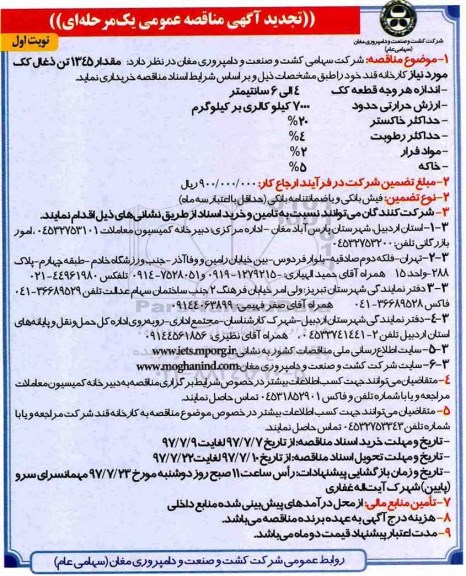 ((تجدید آگهی مناقصه عمومی یک مرحله‌ای))
نوبت اول
شرکت کشت و صنعت و دامپروری مغان
(سهامی عام)
۱- موضوع مناقصه: شرکت سهامی کشت و صنعت و دامپروری مغان در نظر دارد: مقدار ۱۳۴۵ تن ذغال کک
مورد نیاز کارخانه قند خود را طبق مشخصات ذیل و بر اساس شرایط اسناد مناقصه خریداری نماید.
- اندازه هر وجه قطعه کک ۴ الی ۶ سانتیمتر
- ارزش حرارتی حدود ۷۰۰۰ کیلو کالری بر کیلوگرم
- حداکثر خاکستر ۲۰%
- حداکثر رطوبت ۴%
- مواد فرار ۲%
- خاکه ۵%
۲- مبلغ تضمین شرکت در فرآیند ارجاع کار: ۹۰۰/۰۰۰/۰۰۰ ریال
۲- نوع تضمین: فیش بانکی و یا ضمانتنامه بانکی (حداقل با اعتبار سه ماه)
۳- شرکت کنندگان می‌توانند نسبت به تامین و خرید اسناد از طریق نشانی‌های ذیل اقدام نمایند.
۳-۱- استان اردبیل، شهرستان پارس آباد مغان - اداره مرکزی؛ دبیرخانه کمیسیون معاملات ۰۴۵۳۲۷۵۳۱۰۱، امور
بازرگانی تلفن: ۰۴۵۳۲۷۵۳۲۰۰
۳-۲- تهران- فلکه دوم صادقیه- بلوار فردوس- بین خیابان رامین و وفاآذر - جنب ورزشگاه خادم - طبقه چهارم - پلاک
۲۸۸- واحد ۱۵ همراه آقای حمید الهیاری: ۱۲۷۹۲۱۵-۰۹۱۹ و ۷۵۲۸۰۵۱-۰۹۱۴ تلفن: ۴۴۹۶۱۹۸۰-۰۲۱
۳-۳ دفتر نمایندگی شهرستان تبریز: ولی امر خیابان فرهنگ ۲ جنب ساختمان سهام عدالت تلفن ۳۶۶۸۹۵۲۹-۰۴۱
فاکس ۳۶۶۸۹۵۲۸-۰۴۱ همراه آقای صفر فهیمی: ۰۹۱۴۴۰۶۳۸۹۹
۳-۴- دفتر نمایندگی شهرستان اردبیل- شهرک کارشناسان- مجتمع اداری- روبه‌روی اداره کل حمل و نقل و پایانه‌های
استان اردبیل تلفن ۲-۰۴۵۳۳۷۴۱۴۴۱ همراه آقای نظیری: ۰۹۱۴۴۵۶۱۸۵۶
۳-۵- سایت اطلاع رسانی ملی مناقصات کشور به نشانی www.iets.mporg.ir
۳-۶- سایت شرکت کشت و صنعت و دامپروری مغان www.moghanind.com
۴- متقاضیان می‌توانند جهت کسب اطلاعات بیشتر در خصوص شرایط برگزاری مناقصه به دبیرخانه کمیسیون معاملات
مراجعه و یا با شماره تلفن و فاکس ۰۴۵۳۱۸۵۲۹۰۱ تماس حاصل نمایند.
۵- متقاضیان می‌توانند، جهت کسب اطلاعات بیشتر در خصوص موضوع مناقصه به کارخانه قند شرکت مراجعه و یا با
شماره تلفن ۰۴۵۳۲۷۵۳۳۴۳ تماس حاصل نمایند.
- تاریخ و مهلت خرید اسناد مناقصه: از تاریخ ۹۷/۷/۷ لغایت ۹۷/۷/۹
- تاریخ و مهلت تحویل اسناد مناقصه: از تاریخ ۹۷/۷/۱۰ لغایت ۹۷/۷/۲۲
- تاریخ و زمان بازگشایی پیشنهادات: رأس ساعت ۱۱ صبح روز دوشنبه مورخ ۹۷/۷/۲۳ مهمانسرای سرو
(پایین) شهرک آیت‌اله غفاری
۷- تأمین منابع مالی: از محل درآمدهای پیش بینی شده منابع داخلی
۸- هزینه درج آگهی به عهده برنده مناقصه می‌باشد.
۹- مدت اعتبار پیشنهاد قیمت دو ماه می‌باشد.
روابط عمومی شرکت کشت و صنعت و دامپروری مغان (سهامی عام)